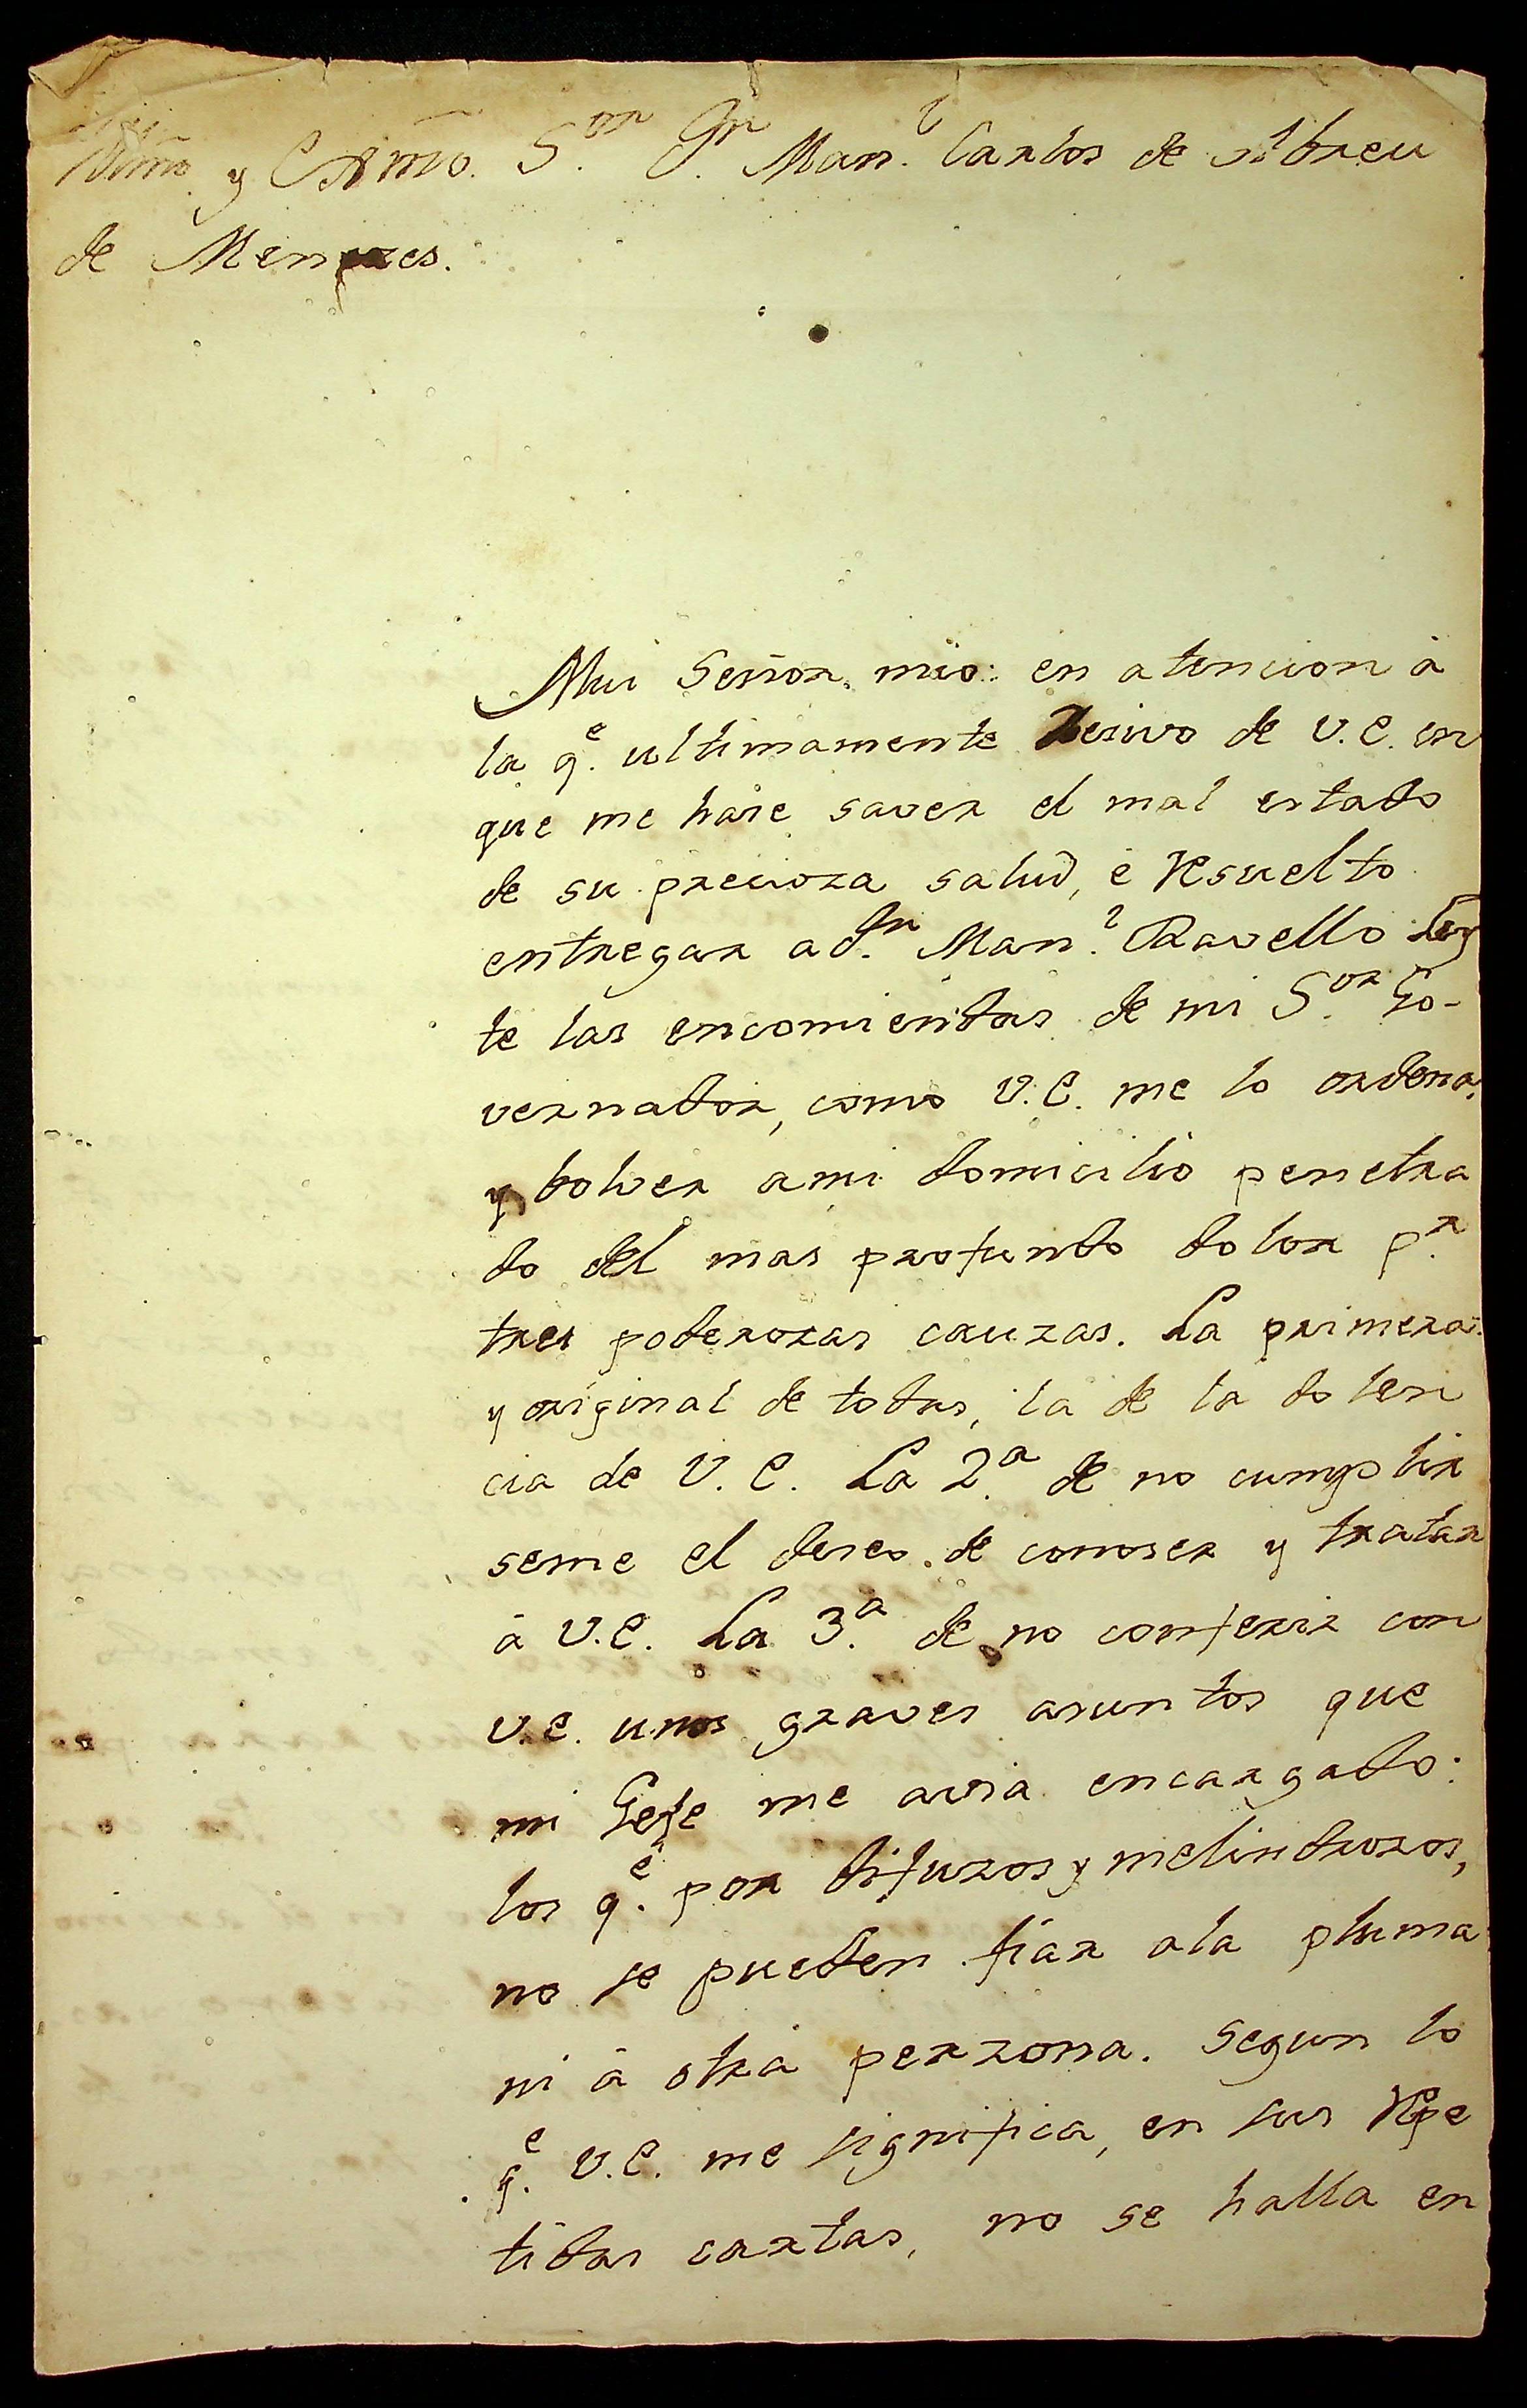 Illmo. y Exmo. S.or D.n Man.l Carlos de Abreu
de Menezes.
Mui Señor mio: en atencion à
la q.e ultimamente recivo de V.E. en
que me haie saver el mal estado
de su precioza salud, è resuelto
entregar a D.n Man.l Ravello
te las encomiendas de mi S.or Go-
vernador, como V.E. me lo ordena,
y bolver ami domicilio penetra
do del mas profundo dolor p.r
tres poderozas cauzas. La primera
y original de todas, la de la dolen
cia de V.E. La 2.a de no cumplir
seme el deseo de conoser y tratar
à V.E. La 3.a de no conferir con
V.E. unos graves asuntos que
mi Gefe me avia encargado:
los q.e por difuzos y melindrozos,
no se pueden fiar ala pluma
ni à otra perzona. Segun lo
q.e V.E. me significa, en sus repe
tidas cartas, no se halla en